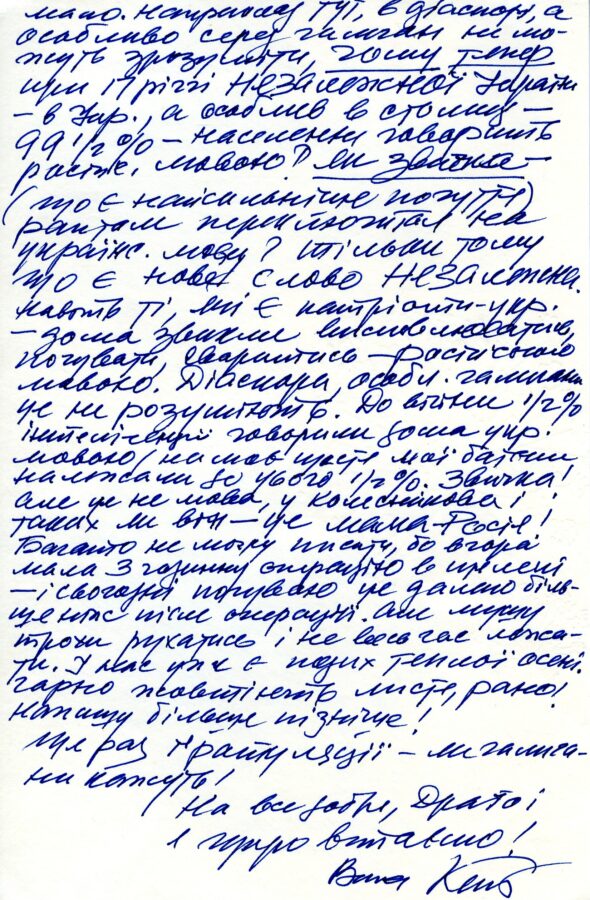 мало. Наприклад тут, в діаспорі, а
особливо серед галичан не мо-
жуть зрозуміти, чому тепер
при 17 річчі Незалежної України
– в Укр., а особлив в столиці –
99 1/2 % – населення говорить
російс. мовою? Як звичка –
(що є найсильніше почуття)
раптом переключитись на
українс. мову? Тільки тому
що є нове слово Незалежна.
Навіть ті, які є патріоти-укр.
– дома звикли висловлюватись,
почувати, сваритись – російською
мовою. Діаспора, особл. галичани
це не розуміють. До війни 1/2 %
інтелігенції говорили дома укр.
мовою (на моє щастя мої батьки
належали до цього 1/2 %. Звичка!
але це не мова, у Колеснікова і
таких як він – це мама-Росія!
Багато не можу писати, бо вчора
мала 3 годинну операцію в
– і сьогодні почуваю ще далеко біль-
ше ніж після операції. Але мушу
трохи рухатись і не весь час лежа-
ти. У нас уже є подих теплої осені.
гарно жовтіють листя, рано!
Напишу більше пізніше!
Ще раз ґратуляції – як галича-
ни кажуть!
На все добре, Дорогі
і щиро вітаємо!
Ваша